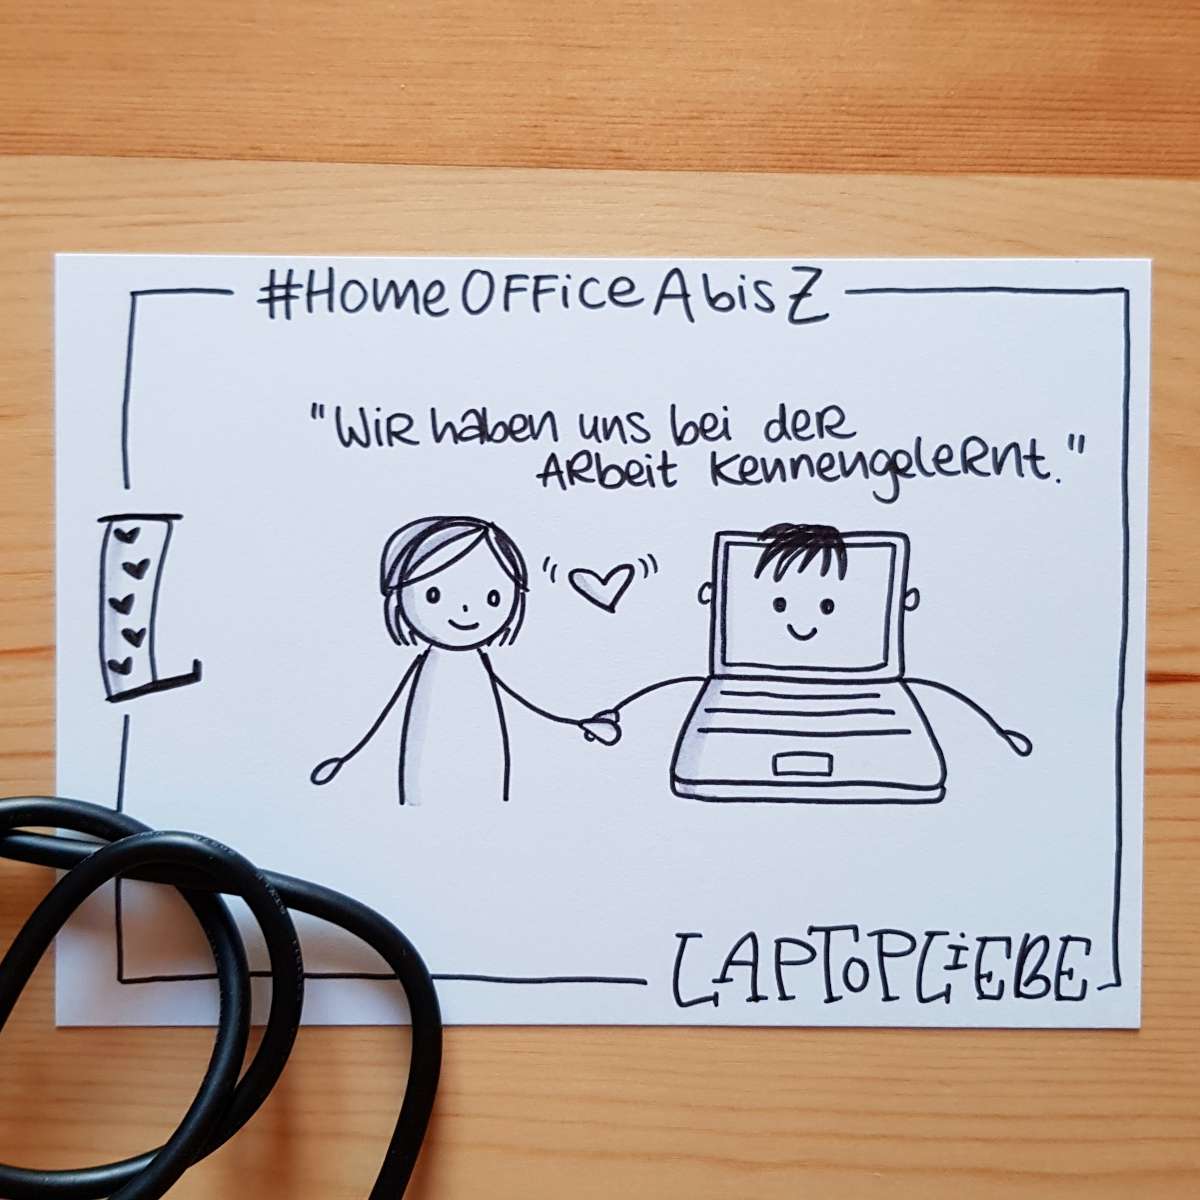 #HomeOfficeAbisZ
"Wir haben uns bei der
Arbeit kennengelernt."
L
LAPTOPLiEBE